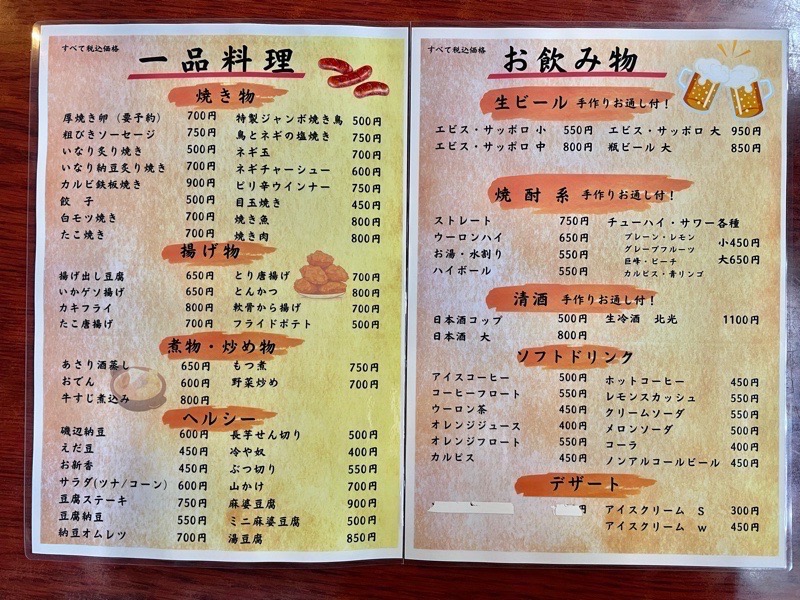 すべて税込価格
一品料理
焼き物
厚焼き卵（要予約） 700円
粗びきソーセージ 750円
いなり炙り焼き 500円
いなり納豆炙り焼き 700円
カルビ鉄板焼き 900円
餃子 500円
白モツ焼き 700円
たこ焼き 700円
特製ジャンボ焼き鳥 500円
鳥とネギの塩焼き 750円
ネギ玉 700円
ネギチャーシュー 600円
ピリ辛ウインナー 750円
目玉焼き 450円
焼き魚 800円
焼き肉 800円
揚げ物
揚げ出し豆腐 650円
いかゲソ揚げ 650円
カキフライ 800円
たこ唐揚げ 700円
とり唐揚げ 700円
とんかつ 800円
軟骨から揚げ 700円
フライドポテト 500円
煮物・炒め物
あさり酒蒸し 650円
おでん 600円
牛すじ煮込み 800円
もつ煮 750円
野菜炒め 700円
ヘルシー
磯辺納豆 600円
えだ豆 450円
お新香 450円
サラダ(ツナ/コーン) 600円
豆腐ステーキ 750円
豆腐納豆 550円
納豆オムレツ 700円
長芋せん切り 500円
冷や奴 400円
ぶつ切り 550円
山かけ 700円
麻婆豆腐 900円
ミニ麻婆豆腐 500円
湯豆腐 850円
すべて税込価格
お飲み物
生ビール 手作りお通し付！
エビス・サッポロ 小 550円
エビス・サッポロ 中 800円
エビス・サッポロ 大 950円
瓶ビール 大 850円
焼酎系 手作りお通し付！
ストレート 750円
ウーロンハイ 650円
お湯・水割り 550円
ハイボール 550円
チューハイ・サワー各種
プレーン・レモン
グレープフルーツ
巨峰・ピーチ
カルピス・青リンゴ
小450円
大650円
清酒 手作りお通し付！
日本酒コップ 500円
日本酒 大 800円
生冷酒 北光 1100円
ソフトドリンク
アイスコーヒー 500円
コーヒーフロート 550円
ウーロン茶 450円
オレンジジュース 400円
オレンジフロート 550円
カルピス 450円
ホットコーヒー 450円
レモンスカッシュ 550円
クリームソーダ 550円
メロンソーダ 500円
コーラ 400円
ノンアルコールビール 450円
デザート
アイスクリーム S 300円
アイスクリーム w 450円